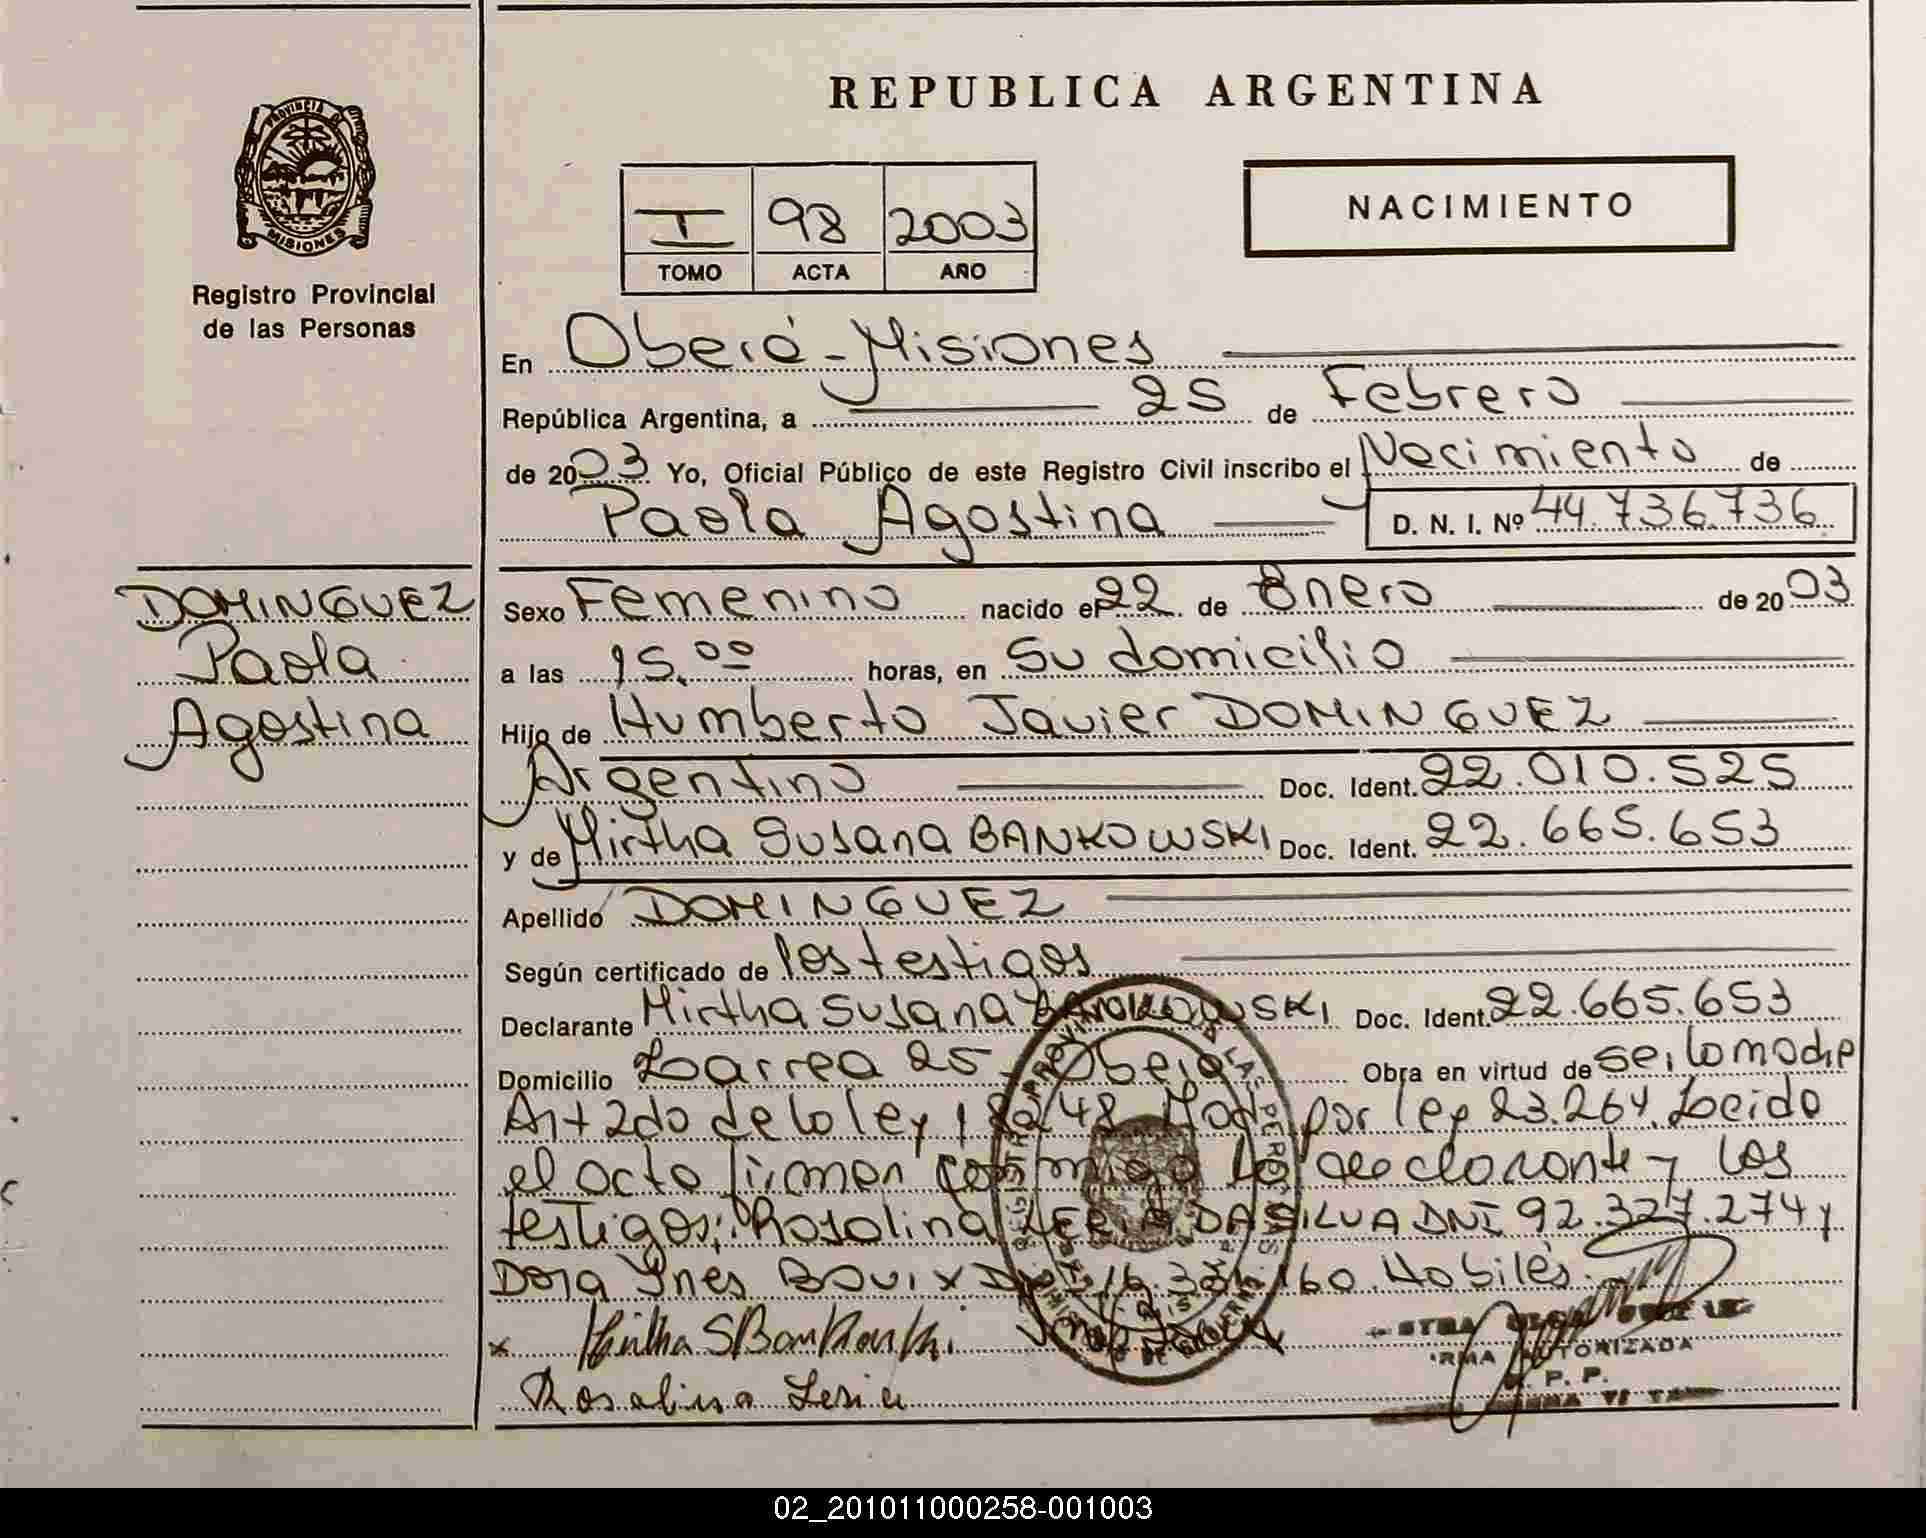 REPUBLICA ARGENTINA
PROVINCIA DE MISIONES
Registro Provincial
de las Personas
I 98 2003
TOMO ACTA AÑO
NACIMIENTO
En Oberá - Misiones
República Argentina, a 25 de Febrero
de 2003 Yo, Oficial Público de este Registro Civil inscribo el Nacimiento de
Paola Agostina D. N. I. Nº 44.736.736
DOMINGUEZ
Paola
Agostina
Sexo Femenino nacido el 22 de Enero de 2003
a las 15.00 horas, en Su domicilio
Hijo de Humberto Javier DOMINGUEZ
Argentino Doc. Ident. 22.010.525
y de Mirtha Susana BANKOWSKI Doc. Ident. 22.665.653
Apellido DOMINGUEZ
Según certificado de los testigos
Declarante Mirtha Susana BANKOWSKI Doc. Ident. 22.665.653
Domicilio Larrea 25 - Oberá Obra en virtud de ser la madre
Art 2do de la ley 18248 Mod. por ley 23.264. Leido
el acto firman conmigo la declarante y los
testigos: Rosalina LERIA DA SILVA DNI 92.327.274 y
Dora Ynes BOVIX 16. 160. Habiles.
x Mirtha S Bankowski
AUTORIZADA
R. P. P.
Rosalina Leria
02_201011000258-001003